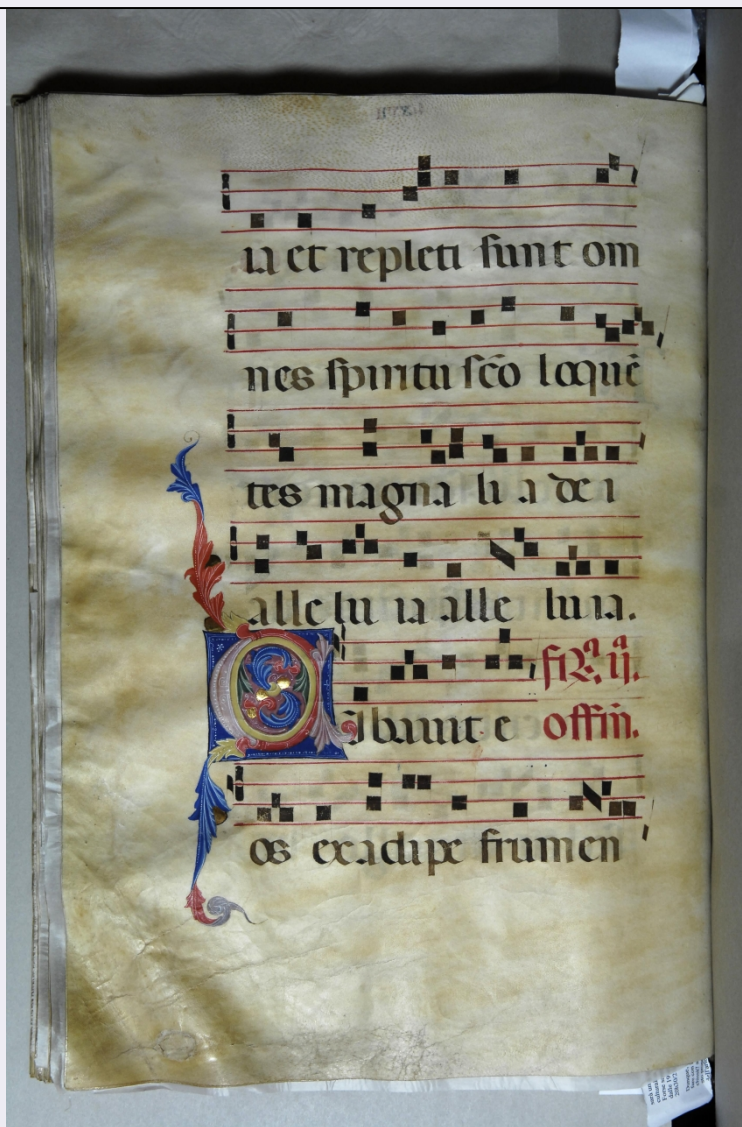 ia et repleti sunt om
nes spiritu scō loquē
tes magna li a de i
alle lu ia alle luia.
fi R. ij.
Cibavit e offiū.
os ex adipe frumen